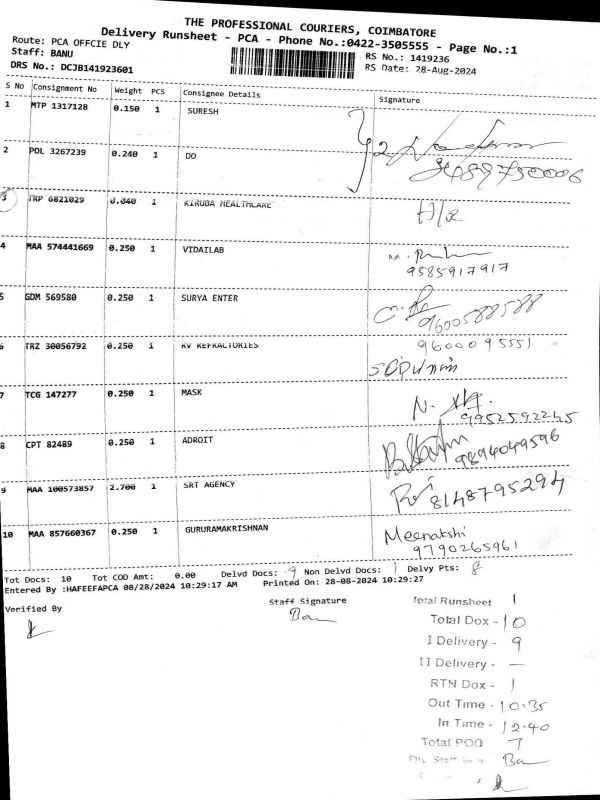 THE PROFESSIONAL COURIERS, COIMBATORE
Delivery Runsheet - PCA - Phone No.:0422-3505555 - Page No.:1
Route: PCA OFFCIE DLY
Staff: BANU
RS No.: 1419236
DRS No.: DCJB141923601
RS Date: 28-Aug-2024
S No Consignment No Weight PCS Consignee Details Signature
1 MTP 1317128 0.150 1 SURESH
2 POL 3267239 0.240 1 DO
3 TRP 6821029 0.040 1 KIRUBA HEALTHCARE
4 MAA 574441669 0.250 1 VIDAILAB
9585917917
5 GDM 569580 0.250 1 SURYA ENTER
9600588588
6 TRZ 30056792 0.250 1 RV REFRACTORIES 9600095551
7 TCG 147277 0.250 1 MASK N.
9952592245
8 CPT 82489 0.250 1 ADROIT
9894049596
9 MAA 100573857 2.700 1 SRT AGENCY
8148795294
10 MAA 857660367 0.250 1 GURURAMAKRISHNAN Meenakshi
9790265961
Tot Docs: 10 Tot COD Amt: 0.00 Delvd Docs: 9 Non Delvd Docs: 1 Delvy Pts: 8
Entered By :HAFEEFAPCA 08/28/2024 10:29:17 AM Printed On: 28-08-2024 10:29:27
Verified By Staff Signature
Total Runsheet 1
Total Dox - 10
I Delivery - 9
II Delivery - —
RTN Dox - 1
Out Time - 10.35
In Time - 12.40
Total POD 7